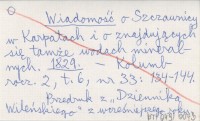 Wiadomość o Szczawnicy
w Karpatach i o znajdujących
się tamże wodach mineral-
nych. 1829. — Kolumb
rocz. 2, t. 6, nr 33: 134-144.
Przedruk z „Dziennika
Wileńskiego" z wcześniejszego roku